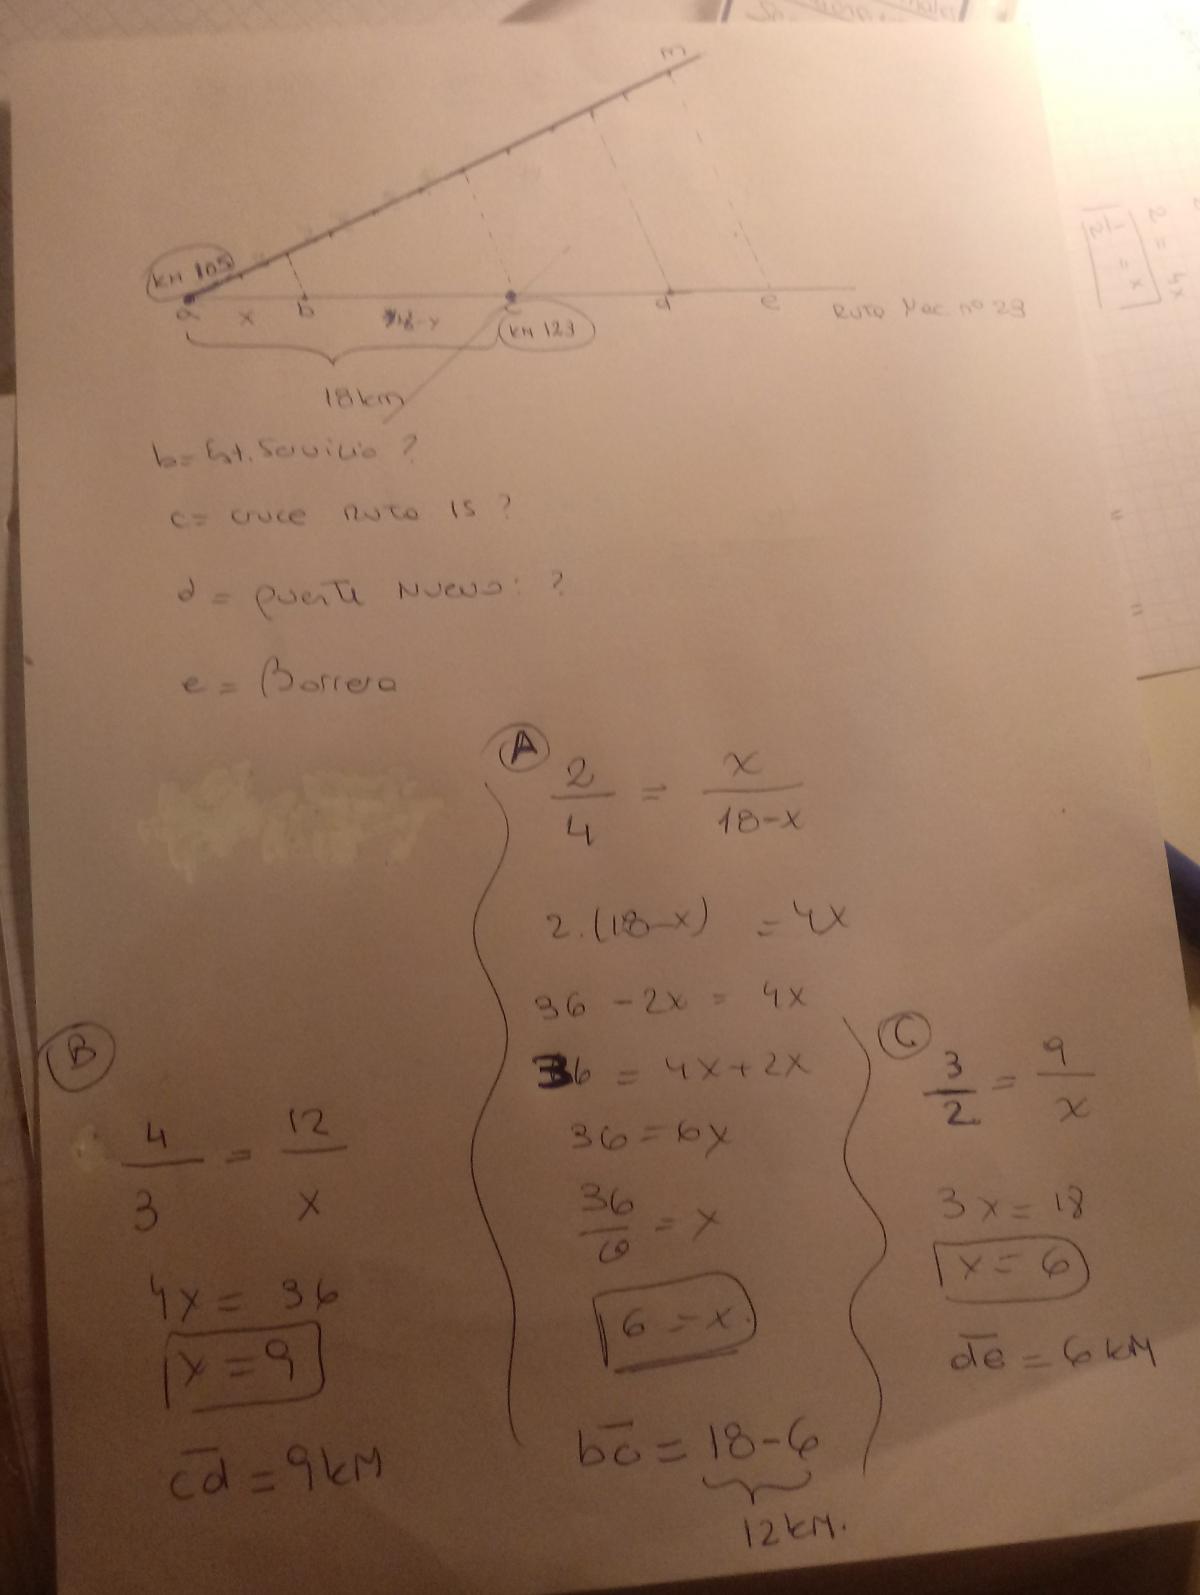 m
KM 105
a x b 18-x c d e
KM 123
Ruta Nac. nº 23
18 km
b = Est. Servicio ?
c = cruce Ruta 15 ?
d = puente Nuevo : ?
e = Barrera
A
2/4 = x/18-x
2.(18-x) = 4x
36 - 2x = 4x
36 = 4x+2x
36 = 6x
36/6 = x
6 = x.
bc = 18-6
12 KM.
B
4/3 = 12/x
4x = 36
x = 9
cd = 9 KM
C
3/2 = 9/x
3x = 18
x = 6
de = 6 KM
2 = 4x
1/2 = x